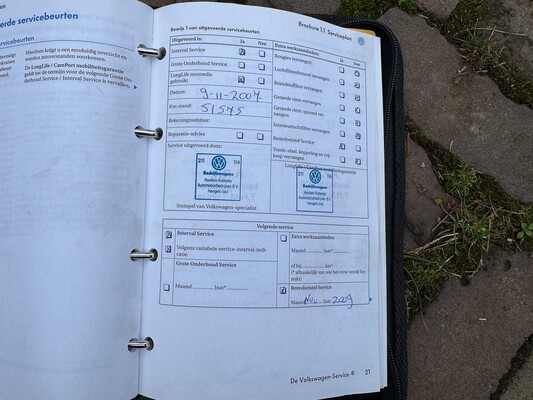 erde servicebeurten
Brochure 1.1 Serviceplan
Bewijs 1 van uitgevoerde servicebeurten
servicebeurten
Uitgevoerd is:
Ja
Nee
Interval Service
Grote Onderhoud Service
LongLife motorolie
gebruikt
Datum:
9-11-2007
Km-stand:
51575
Rekeningnummer:
Reparatie-advies
Service uitgevoerd door:
211
Bedrijfswagens
Stempel van Volkswagen-specialist
Extra werkzaamheden:
Ja
Nee
Bougies vervangen
Luchtfilterelement vervangen
Brandstoffilter vervangen
Getande riem vervangen
Interieurluchtfilter vervangen
Remvloeistof Service
211
Bedrijfswagens
Hierdoor krijgt u een eenduidig overzicht en
worden misverstanden voorkomen.
De LongLife / CarePort mobiliteitsgarantie
geldt tot de termijn voor de volgende Grote On-
derhoud Service / Interval Service is vervallen.
Volgende service
Interval Service
Volgens variabele service-interval-indi-
catie
Grote Onderhoud Service
Maand ........ jaar*........
Extra werkzaamheden
Maand ........ jaar*........
of bij ........ km*
(* afhankelijk van wat het eerst wordt be-
reikt)
Remvloeistof Service
Maand Nov jaar 2009
De Volkswagen-Service ®
21